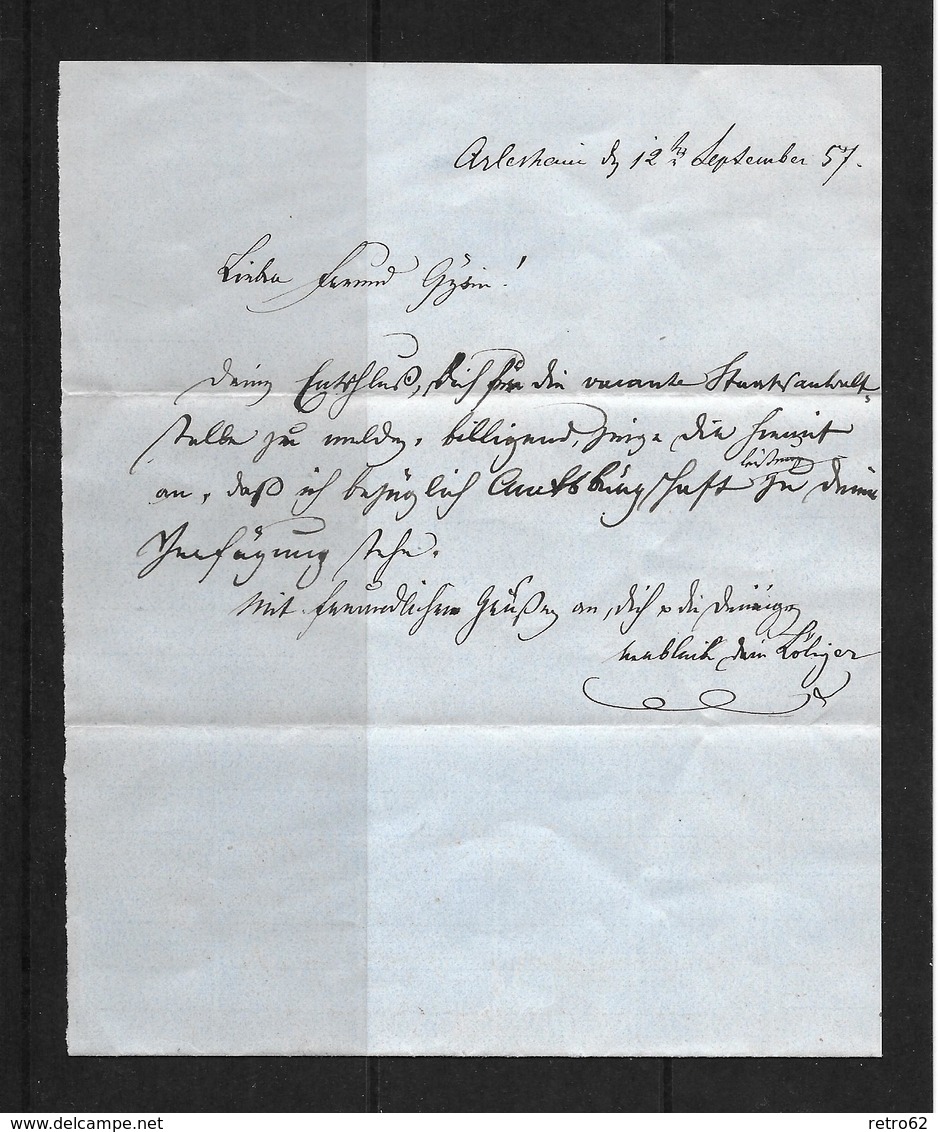 Arlesheim den 12ten September 57.
Lieber Freund Gysin!
Deinen Entschluß, dich für die vacante Staatsanwalt-
stelle zu melden, billigend, zeige dir hiemit
leistung
an, daß ich bezüglich Amtsbürgschaft zu deiner
Verfügung stehe.
Mit freundlichen Grüßen an dich & die Deinigen
verbleibt dein
retro62